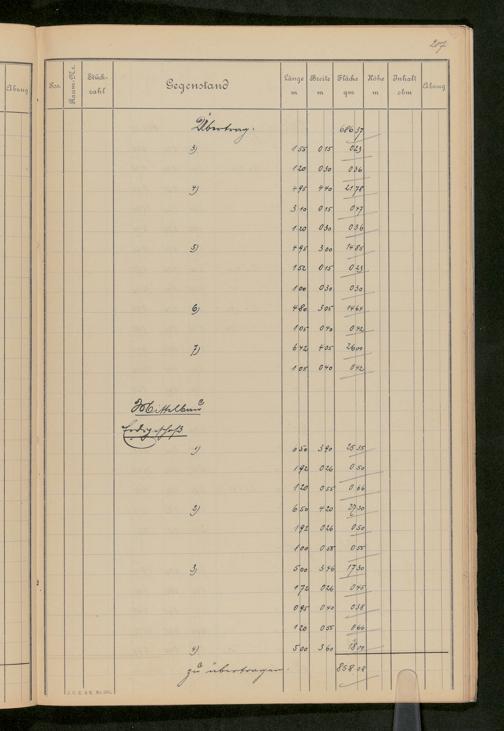 207
Abzug Pos. Raum-Nr. Stück-zahl Gegenstand Länge m Breite m Fläche qm Höhe m Inhalt cbm Abzug
Übertrag. 686 37
3) 1 55 0 15 0 23
1 20 0 30 0 36
4) 4 95 4 40 21 78
3 10 0 15 0 47
1 20 0 30 0 36
5) 4 95 3 00 14 85
1 52 0 15 0 23
1 00 0 30 0 30
6) 4 80 3 05 14 64
1 05 0 40 0 42
7) 6 42 4 05 26 00
1 05 0 40 0 42
Mittelbau
Erdgeschoß
1) 6 50 3 90 25 35
1 92 0 26 0 50
1 20 0 55 0 66
2) 6 50 4 20 27 30
1 92 0 26 0 50
1 00 0 55 0 55
3) 5 00 3 46 17 30
1 72 0 26 0 45
0 95 0 40 0 38
1 20 0 55 0 66
4) 5 00 3 60 18 00
zu übertragen. 858 08